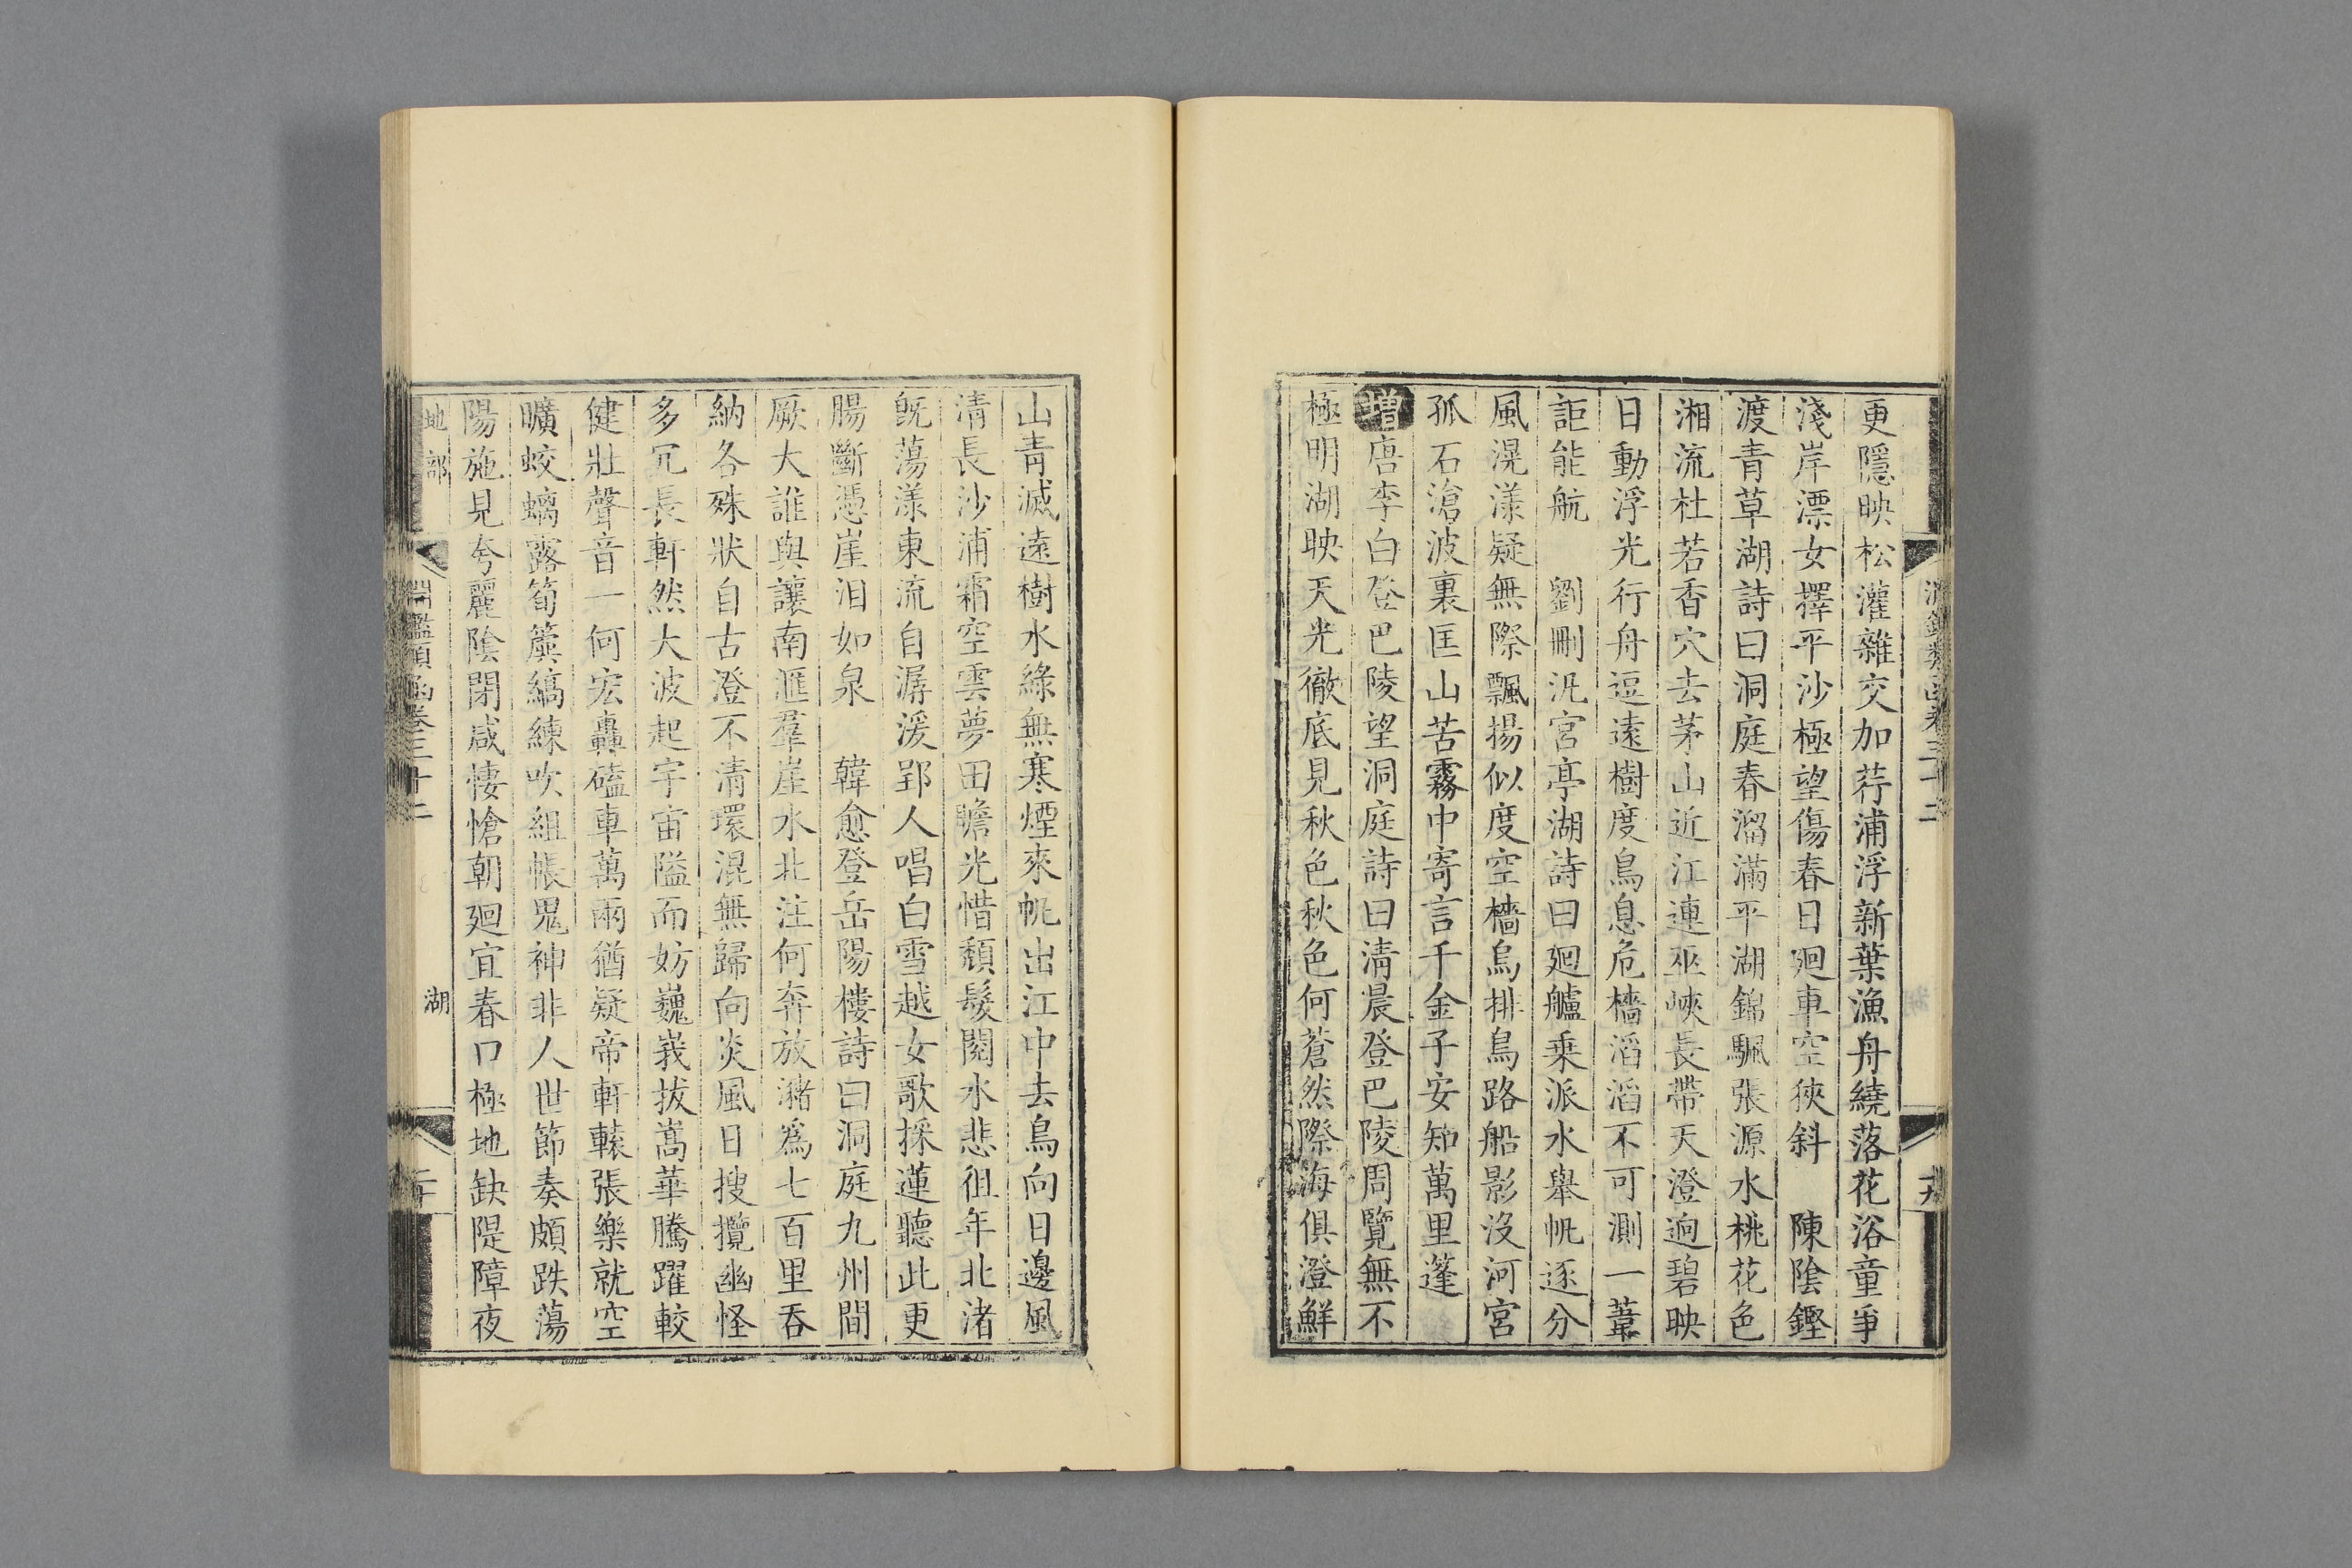 更隱映松灌雜交加荇浦浮新葉漁舟繞落花浴童爭
淺岸漂女擇平沙極望傷春日廻車空狹斜　陳陰鏗
渡青草湖詩曰洞庭春溜滿平湖錦颿張源水桃花色
湘流杜若香穴去茅山近江連巫峽長帶天澄迥碧映
日動浮光行舟逗遠樹度鳥息危檣滔滔不可測一葦
詎能航　劉刪汎宮亭湖詩曰廻艫乘派水舉帆逐分
風滉漾疑無際飄揚似度空檣烏排鳥路船影沒河宮
孤石滄波裏匡山苦霧中寄言千金子安知萬里蓬
增唐李白登巴陵望洞庭詩曰清晨登巴陵周覽無不
極明湖映天光徹底見秋色秋色何蒼然際海俱澄鮮
山青滅遠樹水綠無寒煙來帆出江中去鳥向日邊風
清長沙浦霜空雲夢田瞻光惜頹髮閱水悲徂年北渚
既蕩漾東流自潺湲郢人唱白雪越女歌採蓮聽此更
腸斷憑崖泪如泉　韓愈登岳陽樓詩曰洞庭九州間
厥大誰與讓南滙羣崖水北注何奔放瀦爲七百里吞
納各殊狀自古澄不清環混無歸向炎風日搜攬幽怪
多冗長軒然大波起宇宙隘而妨巍峩拔嵩華騰躍較
健壯聲音一何宏轟磕車萬兩猶疑帝軒轅張樂就空
曠蛟螭露筍簴縞練吹組帳鬼神非人世節奏頗跌蕩
陽施見夸麗陰閉感悽愴朝廻宜春口極地缺隄障夜
地部
淵鑑類函卷三十二
湖
二十